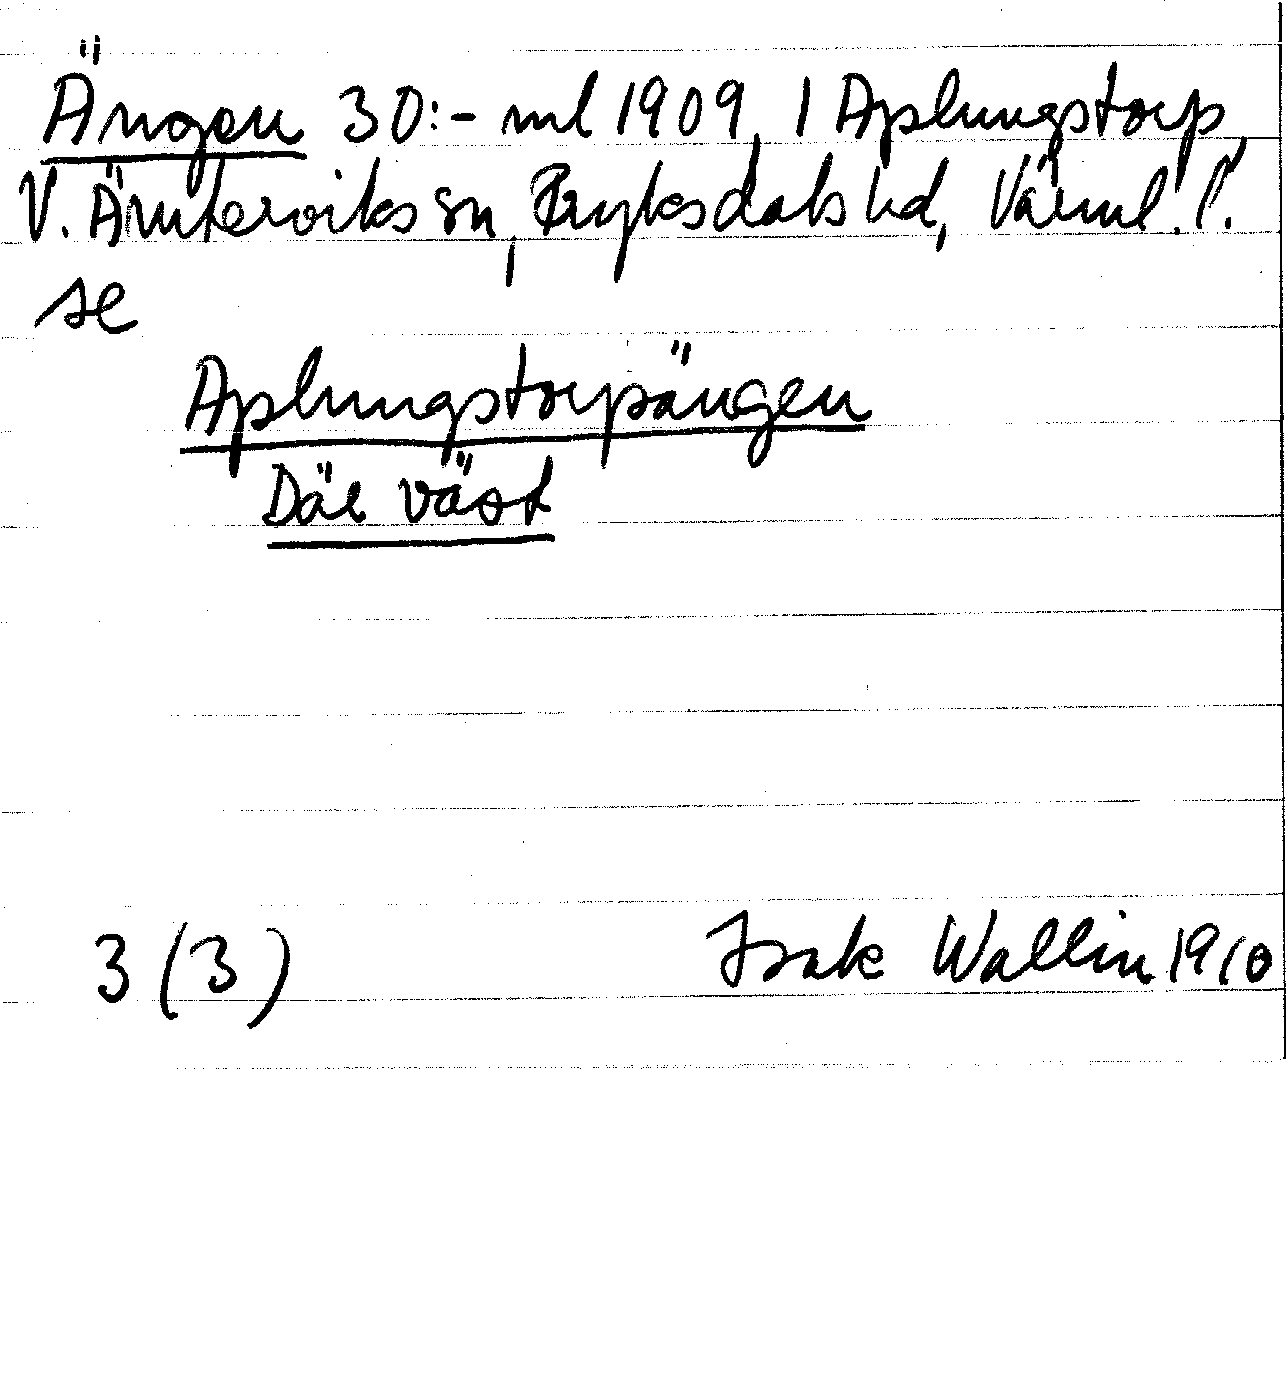 Ängen 30:- ml 1909, 1 Aplungstorp,
V. Ämterviks sn, Fryksdals hd, Värml. l.
se
Aplungstorpängen
Där väst
3 (3) Isak Wallin 1910